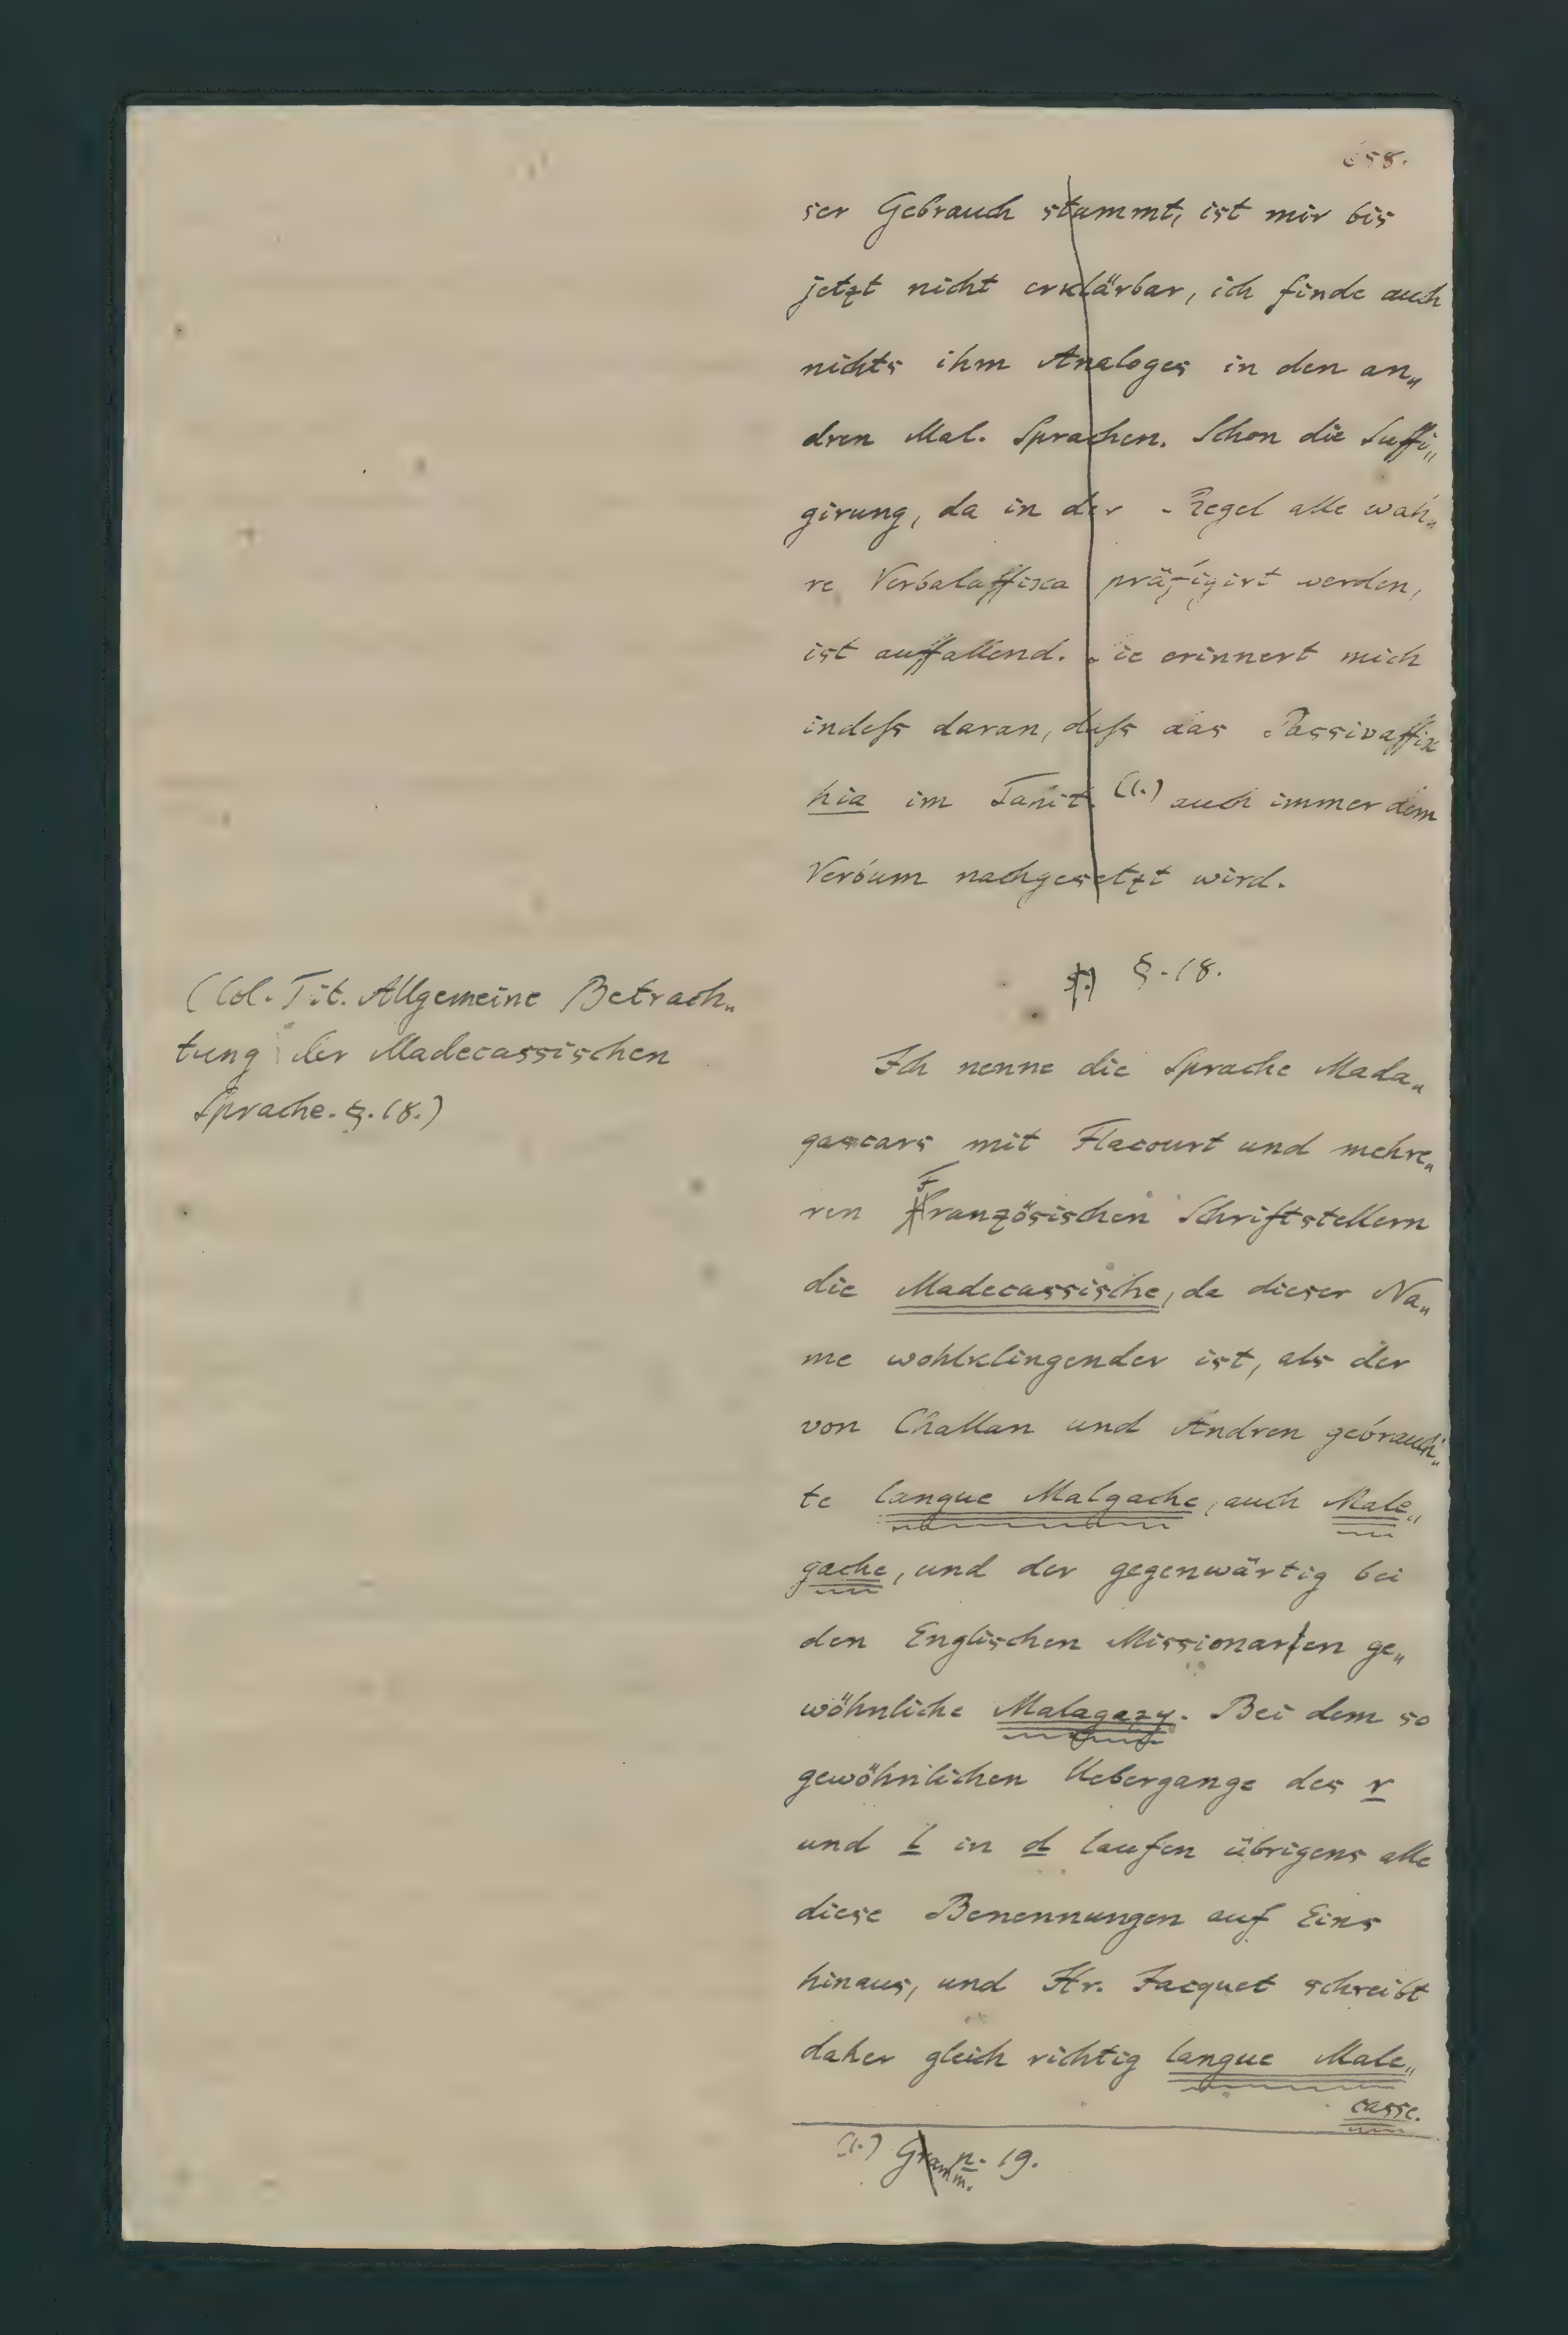 658.
ser Gebrauch stammt, ist mir bis
jetzt nicht erklärbar, ich finde auch
nichts ihm Analoges in den an„
dren Mal. Sprachen. Schon die Suffi„
girung, da in der Regel alle wah„
re Verbalaffixa präfigirt werden,
ist auffallend. Sie erinnert mich
indeſs daran, daſs das Passivaffix
hia im Tahit. (1.) auch immer dem
Verbum nachgesetzt wird.
§. 18.
(Col. Tit. Allgemeine Betrach„
tung der Madecassischen
Sprache. §. 18.)
Ich nenne die Sprache Mada„
gascars mit Flacourt und mehre„
ren Französischen Schriftstellern
die Madecassische, da dieser Na„
me wohlklingender ist, als der
von Challan und Andren gebrauch„
te langue Malgache, auch Male„
gache, und der gegenwärtig bei
den Englischen Missionarien ge„
wöhnliche Malagazy. Bei dem so
gewöhnlichen Uebergange des r
und l in d laufen übrigens alle
diese Benennungen auf Eins
hinaus, und Hr. Jacquet schreibt
daher gleich richtig langue Male„
casse.
(1.) Gramm. n. 19.